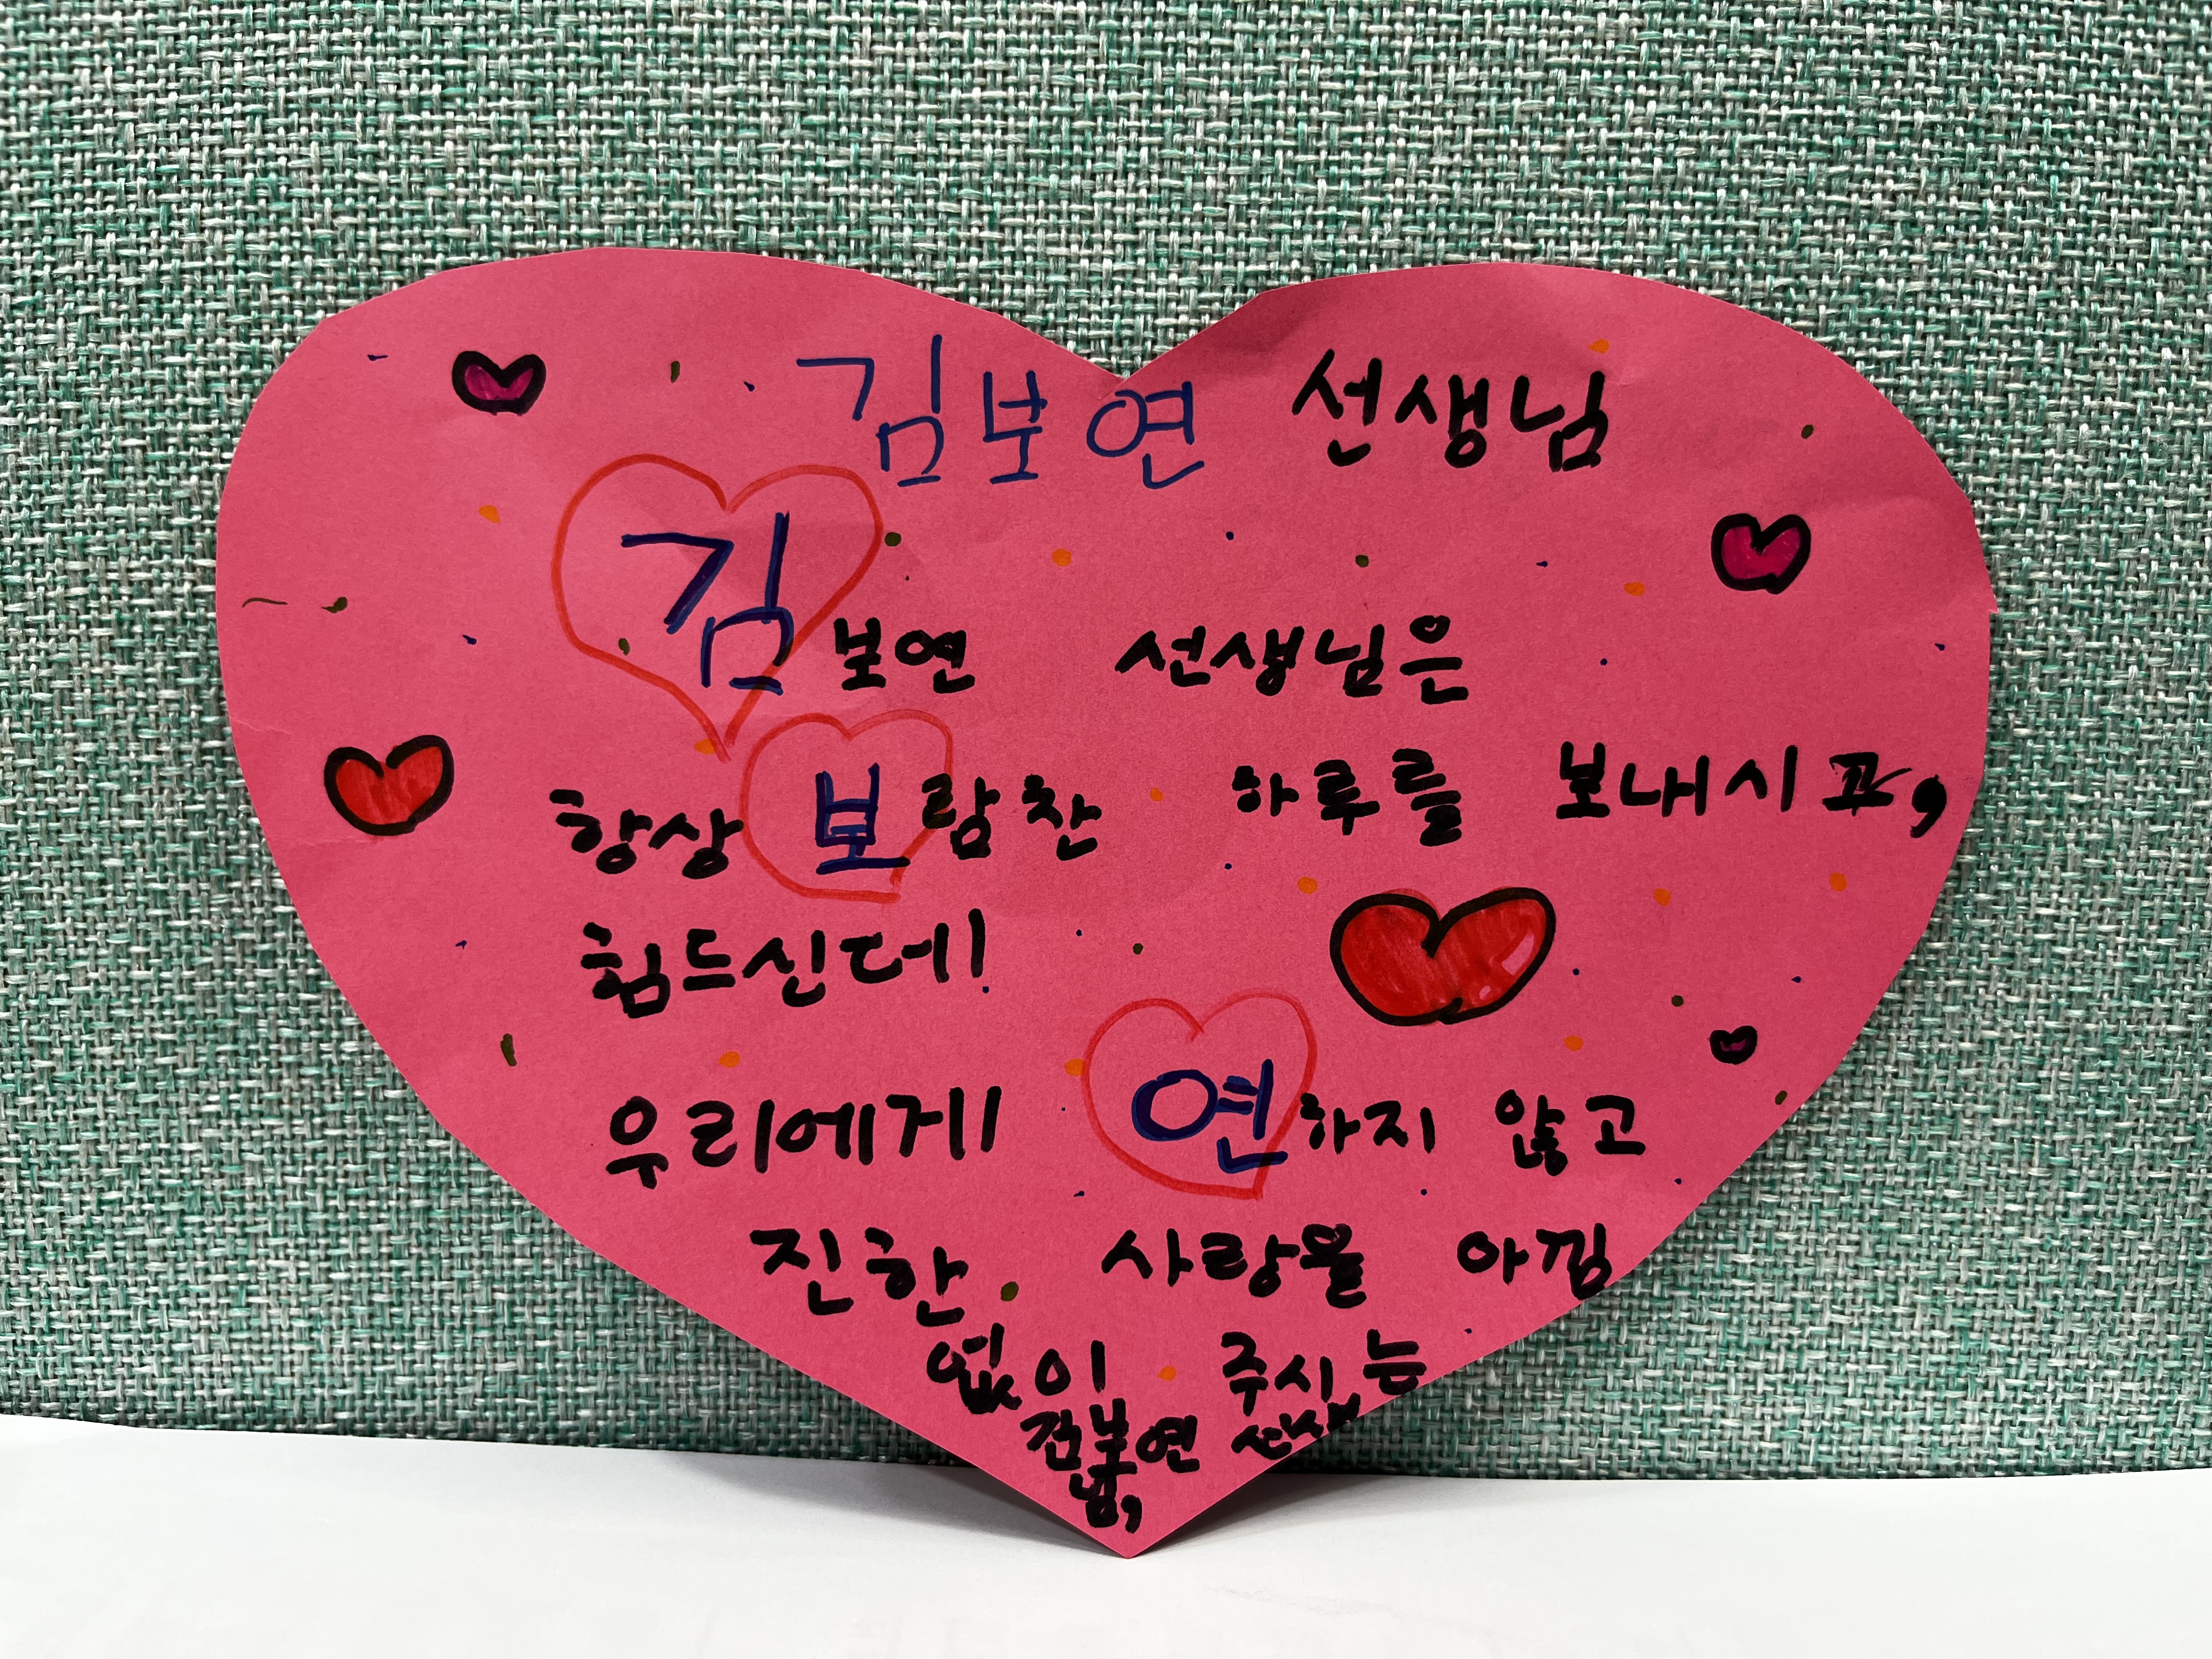 김보연 선생님
김보연 선생님은
항상 보람찬 하루를 보내시고,
힘드신데!
우리에게! 연하지 않고
진한 사랑을 아낌
없이 주시는
김보연 선생
님,